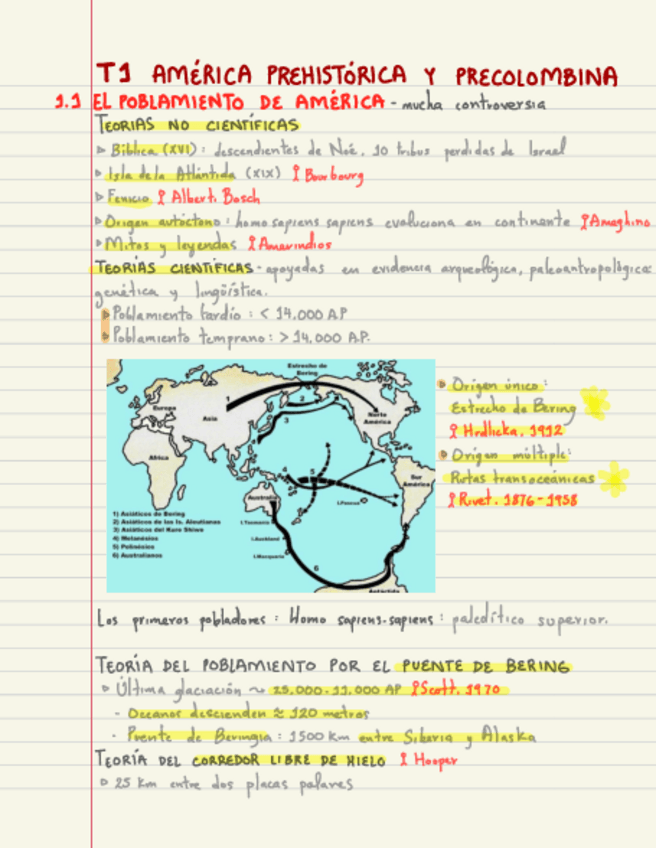 T1 AMÉRICA PREHISTÓRICA Y PRECOLOMBINA
1.1 EL POBLAMIENTO DE AMÉRICA - mucha controversia
TEORIAS NO CIENTÍFICAS
Bíblica (XVI): descendientes de Noé. 10 tribus perdidas de Israel
Isla de la Atlántida (XIX) Bourbourg
Fenicio Albert. Bosch
Origen autóctono: homo sapiens sapiens evoluciona en continente Ameghino
Mitos y leyendas Amerindios
TEORÍAS CIENTÍFICAS - apoyadas en evidencia arqueológica, paleoantropológica
genética y lingüística.
Poblamiento tardío: < 14.000 AP
Poblamiento temprano: > 14.000 A.P.
Estrecho de
Bering
Europa
Asia
Norte
América
África
Sur
América
Australia
1
2
3
4
5
6
I.Tasmania
I.Auckland
I.Macquarie
I.Pascua
Antártida
1) Asiáticos de Bering
2) Asiáticos de las Is. Aleutianas
3) Asiáticos del Kuro Shiwo
4) Melanésios
5) Polinésios
6) Australianos
Origen único:
Estrecho de Bering
Hrdlicka. 1912
Origen múltiple:
Rutas transoceánicas
Rivet. 1876-1958
Los primeros pobladores: Homo sapiens-sapiens: paleolítico superior.
TEORÍA DEL POBLAMIENTO POR EL PUENTE DE BERING
Última glaciación ~ 25.000-11.000 AP Scott. 1970
- Oceanos descienden ≈ 120 metros
- Puente de Beringia: 1500 km entre Siberia y Alaska
TEORÍA DEL CORREDOR LIBRE DE HIELO Hooper
25 km entre dos placas polares